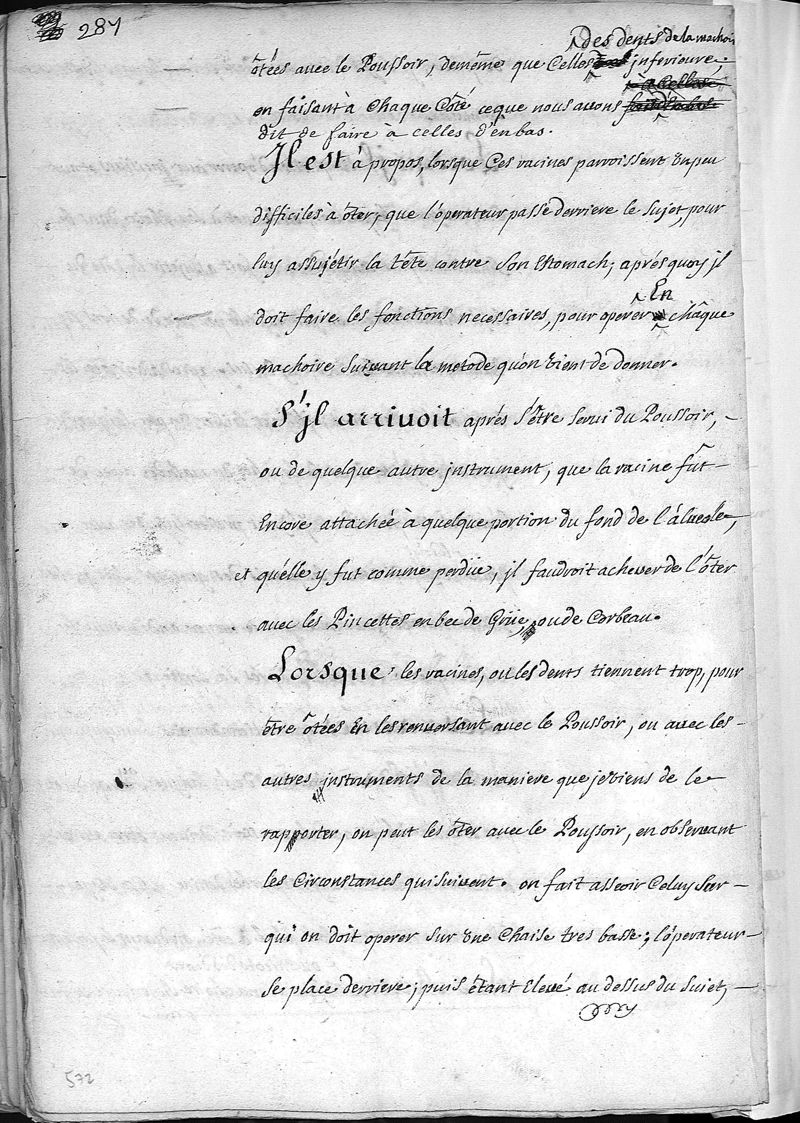 287
des dents de la machoire
ôtées avec le Poussoir, demême que Celles inferieure,
en faisant à chaque Côté ceque nous avons
dit de faire à celles d'enbas.
Il est à propos, lorsque Ces racines parroissent un peu
difficiles à ôter, que l'operateur passe derriere le sujet, pour
luy assujétir la tête contre Son Estomach; aprés quoy jl
doit faire les fonctions necessaires, pour operer En châque
machoire Suivant la metode qu'on vient de donner.
S'jl arrivoit aprés s'être servi du Poussoir,
ou de quelque autre jnstrument, que la racine fut
Encore attachée à quelque portion du fond de l'álveole,
et qu'elle y fut comme perdüe, jl faudroit achever de l'ôter
avec les Pincettes en bec de Grüe, ou de Corbeau.
Lorsque les racines, ou les dents tiennent trop, pour
être ôtées En les renversant avec le Poussoir, ou avec les
autres jnstruments de la maniere que je viens de le
rapporter, on peut les ôter avec le Poussoir, en observant
les Circonstances qui suivent. on fait asseoir Celuy Sur
qui on doit operer sur une Chaise tres basse; l'operateur
se place derriere; puis étant Elevé au dessus du Sujet,
572